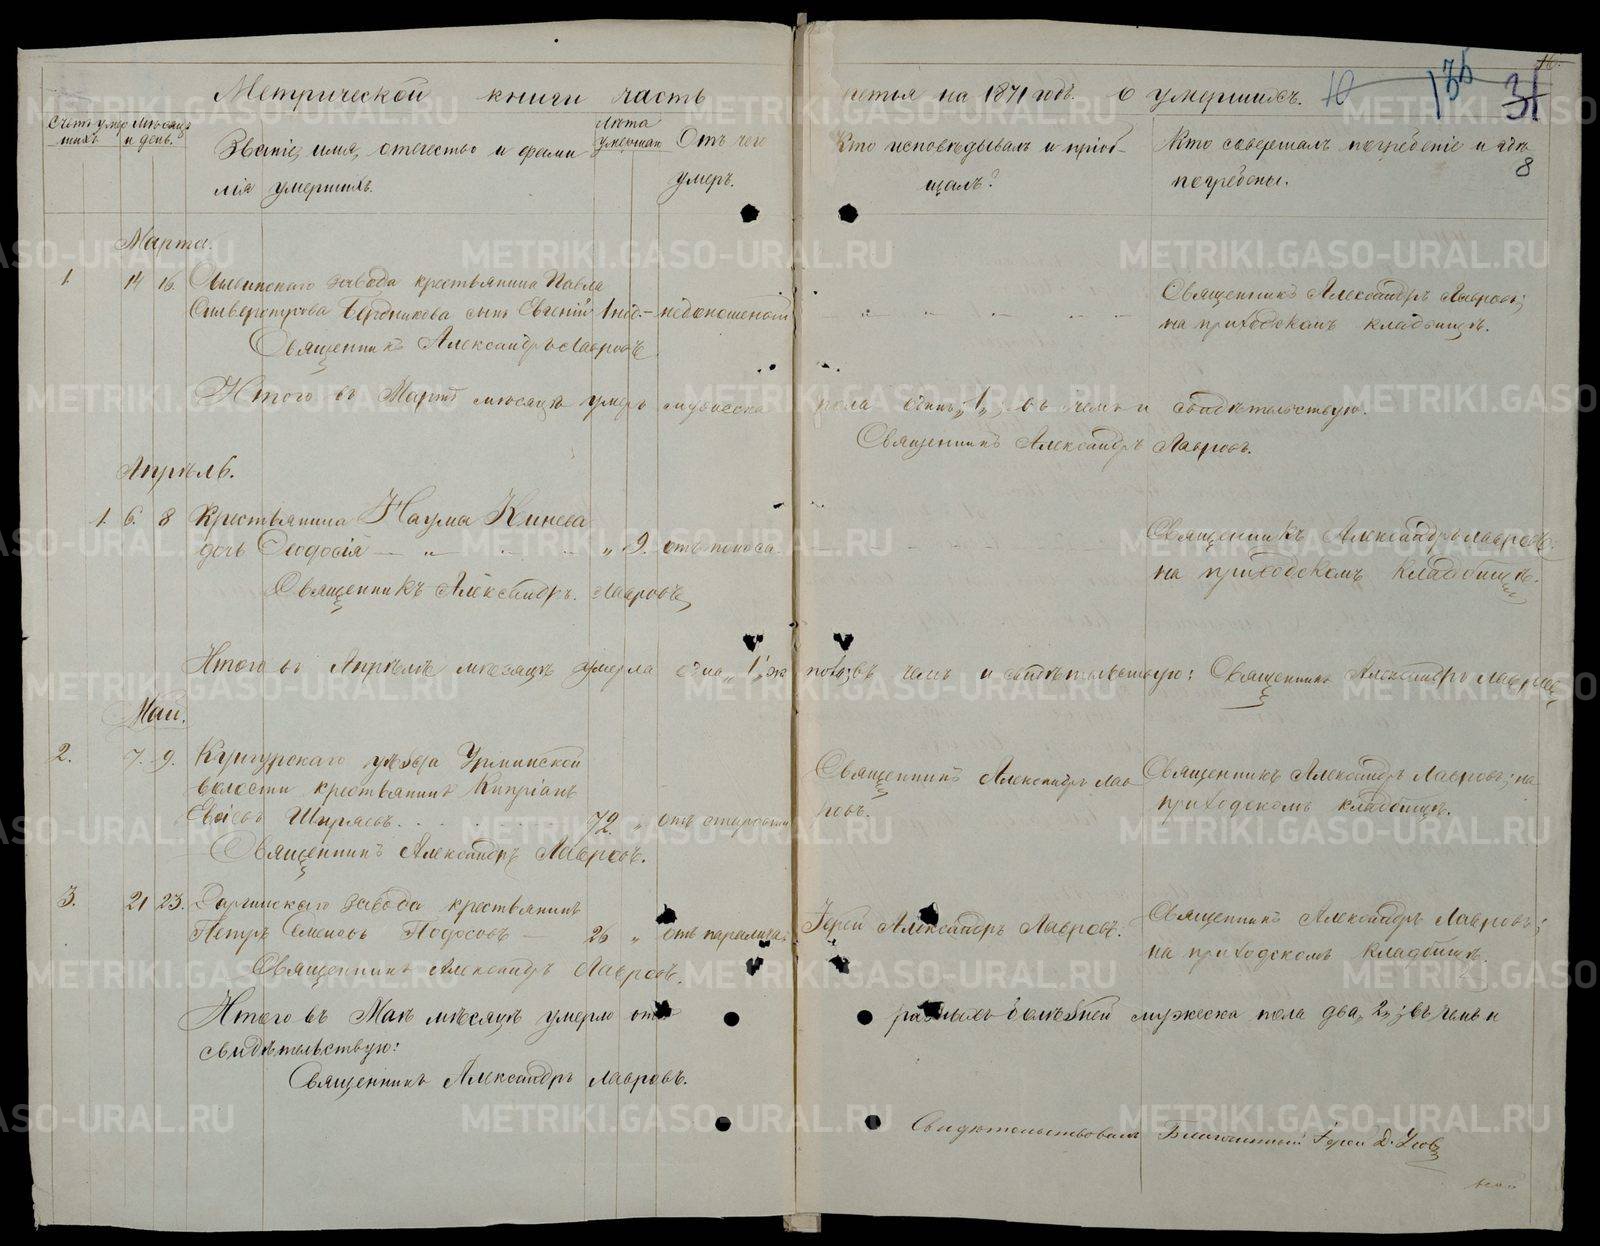 Метрической книги часть
третья на 1871 годъ. О умершихъ.
10
135
31
8
Счетъ умер
шихъ
Мѣсяцъ
и день.
Званіе, имя, отечество и фами
лія умершихъ.
Лѣта
умершаго
Отъ чего
умеръ.
Кто исповѣдывалъ и пріоб-
щалъ?
Кто совершалъ погребеніе и гдѣ
погребены.
Марта.
1. 14 16 завода крестьянина Павла
Бердникова сынъ Евгеній 1 нед. – недоношеной
Священникъ Александръ Лавровъ;
на приходскомъ кладбищѣ.
Священникъ Александръ Лавровъ
Итого въ Мартѣ мѣсяцѣ умеръ мужеска пола одинъ „1„ въ чемъ и свидѣтельствую.
Священникъ Александръ Лавровъ.
Апрѣль.
1. 6. 8 Крестьянина Наума Кинева
дочь Ѳеодосія „ 9. отъ поноса.
Священникъ Александръ Лавровъ:
на приходскомъ кладбищѣ.
Священникъ Александръ. Лавровъ
Итого въ Апрѣлѣ мѣсяцѣ умерла одна „1„ въ чемъ и свидѣтельствую: Священникъ Александръ Лавровъ
Май.
2. 7. 9. Кунгурскаго уѣзда Урминской
волости крестьянинъ Кипріанъ
Ширяевъ 72 „ отъ старости
Священникъ Александръ Лав
ровъ.
Священникъ Александръ Лавровъ; на
приходскомъ кладбищѣ.
Священникъ Александръ Лавровъ.
3. 21 23. завода крестьянинъ
Петръ Семеновъ 26 „ отъ паралича.
Іерей Александръ Лавровъ.
Священникъ Александръ Лавровъ;
на приходскомъ кладбищѣ.
Священникъ Александръ Лавровъ.
Итого въ Маѣ мѣсяцѣ умерло отъ разныхъ болѣзней мужеска пола два „2„; въ чемъ и
свидѣтельствую:
Священникъ Александръ Лавровъ.
Свидѣтельствовалъ Благочинный Іерей Д.
METRIKI.GASO-URAL.RU